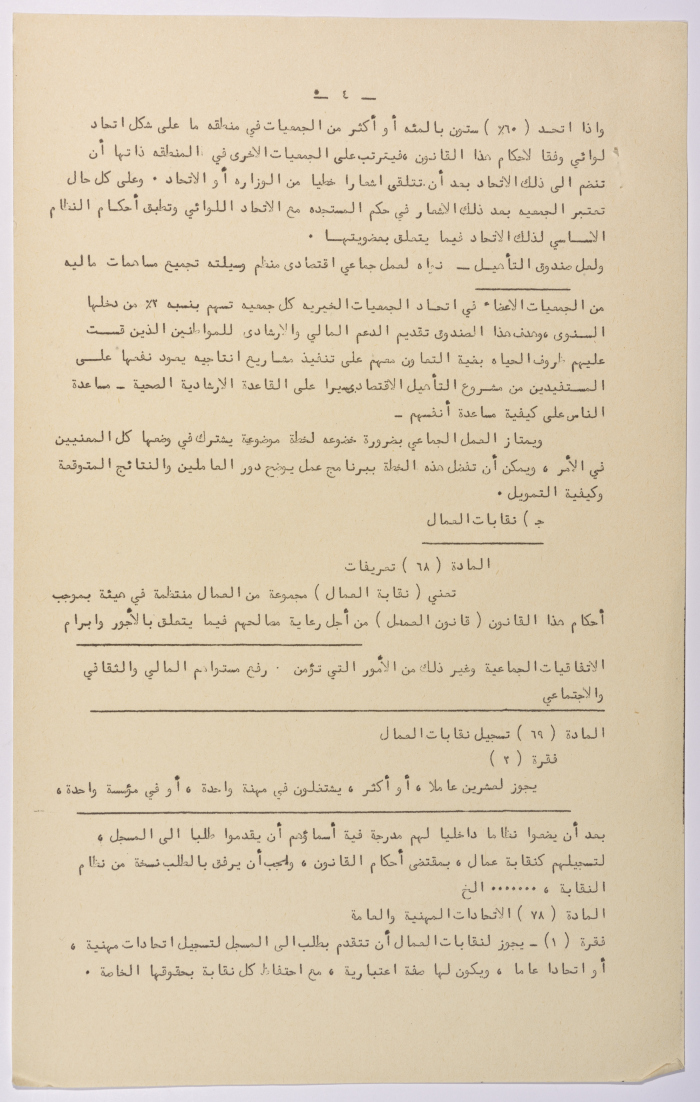 ـ ٤ ـ
واذا اتحد ( ٦٠٪ ) ستون بالمئه أو أكثر من الجمعيات في منطقه ما على شكل اتحاد
لوائي وفقا لاحكام هذا القانون ، فيترتب على الجمعيات الاخرى في المنطقه ذاتها أن
تنضم الى ذلك الاتحاد بعد أن تتلقى اشعارا خطيا من الوزاره أو الاتحاد ٠ وعلى كل حال
تعتبر الجمعيه بعد ذلك الاشعار في حكم المستجده مع الاتحاد اللوائي وتطبق أحكام النظام
الاساسي لذلك الاتحاد فيما يتعلق بعضويتها ٠
ولعل صندوق التأهيل ـ نواه لعمل جماعي اقتصادى منظم وسيلته تجميع مساهمات ماليه
من الجمعيات الاعضاء في اتحاد الجمعيات الخيريه كل جمعيه تسهم بنسبه ٢٪ من دخلها
السنوى ، وهدف هذا الصندوق تقديم الدعم المالي والارشادى للمواطنين الذين قست
عليهم ظروف الحياه بغية التعاون معهم على تنفيذ مشاريع انتاجيه يعود نفعها على
المستفيدين من مشروع التأهيل الاقتصادى سيرا على القاعدة الارشادية الصحية ـ مساعدة
الناس على كيفية مساعدة أنفسهم ـ
ويمتاز العمل الجماعي بضرورة خضوعه لخطة موضوعية يشترك في وضعها كل المعنيين
في الأمر ، ويمكن أن تفضل هذه الخطة ببرنامج عمل يوضح دور العاملين والنتائج المتوقعة
وكيفية التمويل ٠
جـ ) نقابات العمال
المادة ( ٦٨ ) تعريفات
تعني ( نقابة العمال ) مجموعة من العمال منتظمة في هيئة بموجب
أحكام هذا القانون ( قانون العمل ) من أجل رعاية مصالحهم فيما يتعلق بالأجور وابرام
الاتفاقيات الجماعية وغير ذلك من الأمور التي تؤمن ٠ رفع مستواهم المالي والثقافي
والاجتماعي
المادة ( ٦٩ ) تسجيل نقابات العمال
فقرة ( ٢ )
يجوز لعشرين عاملا ، أو أكثر ، يشتغلون في مهنة واحدة ، أو في مؤسسة واحدة ،
بعد أن يضعوا نظاما داخليا لهم مدرجة فية أسماؤهم أن يقدموا طلبا الى المسجل ،
لتسجيلهم كنقابة عمال ، بمقتضى أحكام القانون ، ويجب أن يرفق بالطلب نسخة من نظام
النقابة ، ٠٠٠٠٠٠٠ الخ
المادة ( ٧٨ ) الاتحادات المهنية والعامة
فقرة ( ١ ) ـ يجوز لنقابات العمال أن تتقدم بطلب الى المسجل لتسجيل اتحادات مهنية ،
أو اتحادا عاما ، ويكون لها صفة اعتبارية ، مع احتفاظ كل نقابة بحقوقها الخاصة ٠